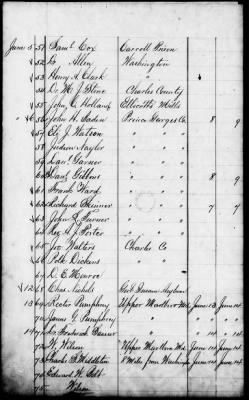 June 5 51 Saml Cox Carroll Prison
52 Allen Washington
53 Henry A. Clark " "
54 Dr. M. J. Stone Charles County
55 John C. Holland Ellicotts Mills
56 John H. Baden Prince Georges Co. 8 9
57 Eli J. Watson " "
58 Judson Naylor " "
59 Garner " "
60 Danl Gibbons " " 8 9
61 Frank Ward " "
62 Richard Skinner " " 7 7
63 John R. Turner " "
64 A. J. Porter " "
65 Joe Walters Charles Co
66 Polk Dickens " "
67 D. E. Monroe
12 68 Chas. Nichols Insane Asylum
13 69 Rector Pumphrey Upper Marlboro Md. June 13 June 14
70 James G. Pumphrey " " " "
14 71 Frederick " 14 " "
72 W. Wilson Upper Marlboro Md. June 14 June 14
73 Middleton 8 Miles from Washington June 14 June 14
74 Edward W.
75 Wilson